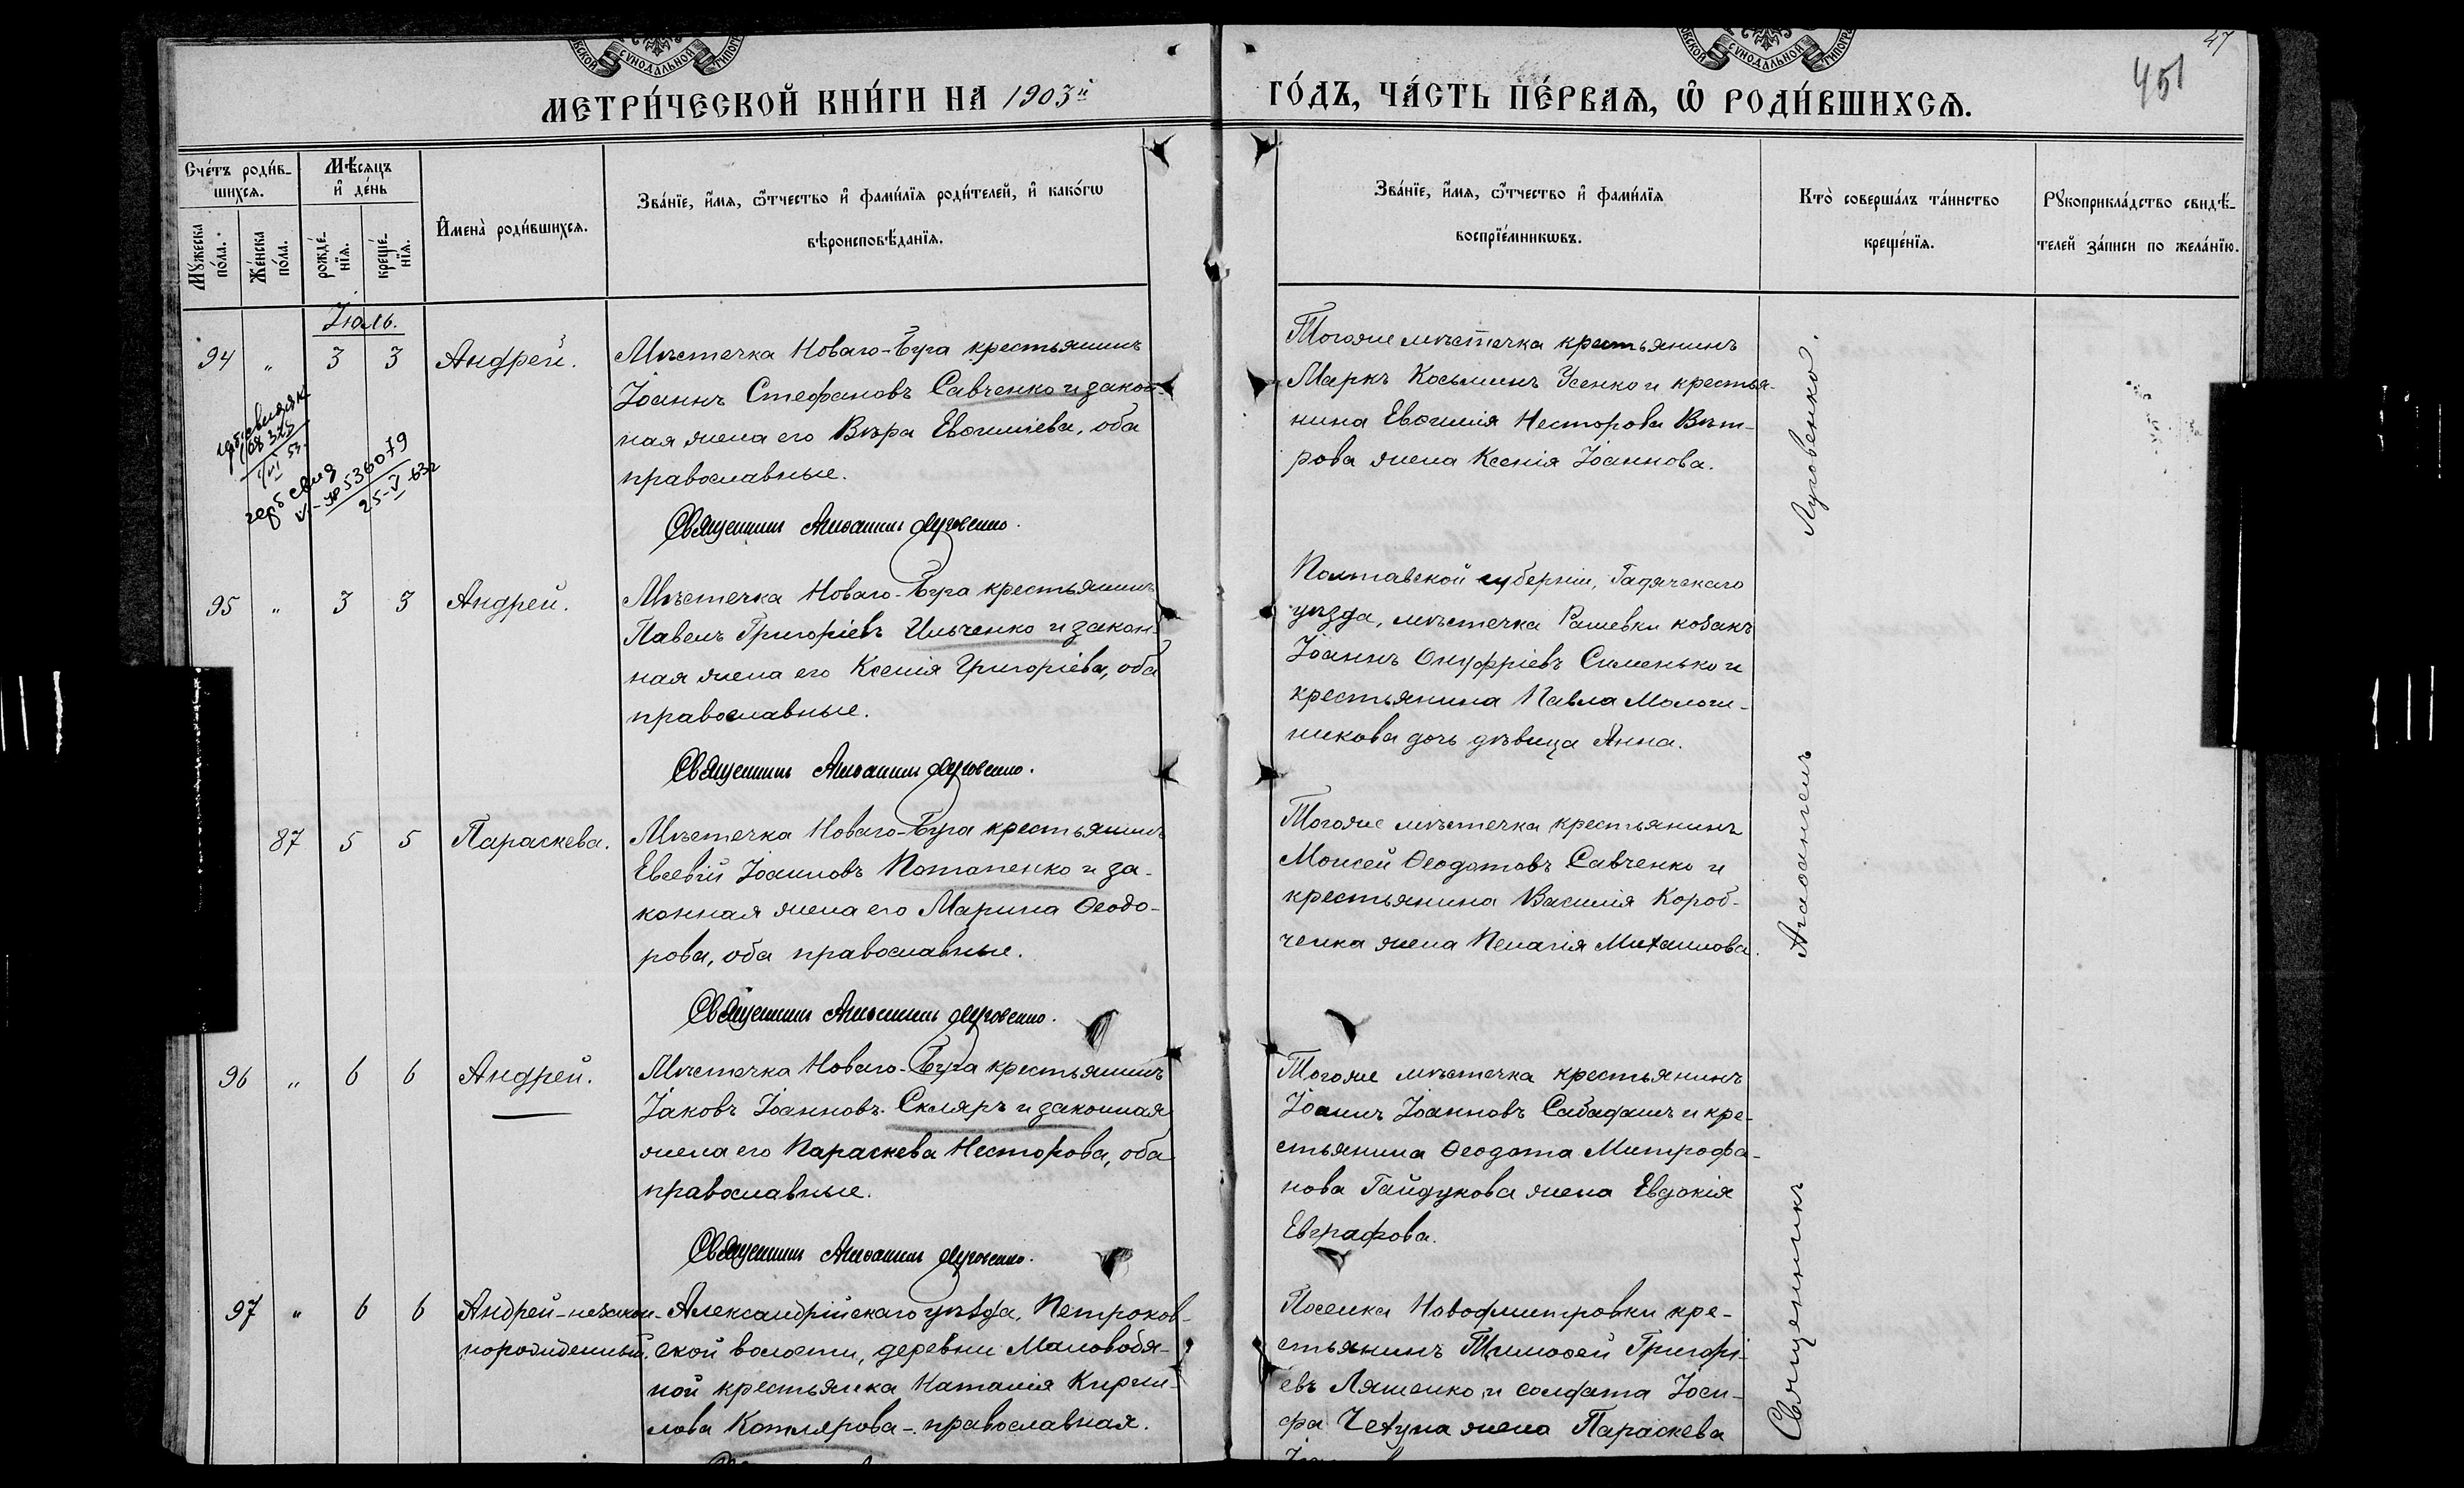 СУНОДАЛЬНОЙ
СУНОДАЛЬНОЙ
47
451
МЕТРИ́ЧЕСКОЙ КНИ́ГИ НА 1903й
ГО́ДЪ, ЧА́СТЬ ПЕ́РВАѦ, Ѡ҆ РОДИ́ВШИХСѦ.
Сче́тъ роди́в-
шихсѧ.
Мѣ́сѧцъ
и҆ де́нь
Мꙋ́жеска
по́ла.
Же́нска
по́ла.
рожде́-
нїѧ.
креще́-
нїѧ.
И҆мена̀ роди́вшихсѧ.
Зва́нїе, и҆́мѧ, ѻ҆́тчество и҆ фами́лїѧ роди́телей, и҆ како́гѡ
вѣроисповѣ́данїѧ.
Зва́нїе, и҆́мѧ, ѻ҆́тчество и҆ фами́лїѧ
воспрїе́мникѡвъ.
Кто̀ соверша́лъ та́инство
креще́нїѧ.
Рꙋкоприкла́дство свидѣ́-
телей за́писи по жела́нїю.
Іюль.
94 " 3 3 Андрей.
Мѣстечка Новаго-Буга крестьянинъ
Іоаннъ Стефановъ Савченко и закон-
ная жена его Вѣра Евѳиміева, оба
православные.
Священникъ Аѳанасій Луговенко.
Тогоже мѣстечка крестьянинъ
Маркъ Косьминъ Усенко и крестья-
нина Евѳимія Несторова Вѣт-
рова жена Ксенія Іоаннова.
герб свид
536079
25-V-63г
95 " 3 3 Андрей.
Мѣстечка Новаго-Буга крестьянинъ
Павелъ Григоріевъ Ильченко и закон-
ная жена его Ксенія Григоріева, оба
православные.
Священникъ Луговенко.
Полтавской губерніи, Гадячскаго
уѣзда, мѣстечка Рашевки козакъ
Іоаннъ Онуфріевъ Сименько и
крестьянина Павла Мологи-
никова дочь дѣвица Анна.
87 5 5 Параскева.
Мѣстечка Новаго-Буга крестьянинъ
Евсевій Іоанновъ Потапенко и за-
конная жена его Марина Ѳеодо-
рова, оба православные.
Священникъ Луговенко.
Тогоже мѣстечка крестьянинъ
Моисей Ѳеодотовъ Савченко и
крестьянина Василія Короб-
ченка жена Пелагія Михаилова.
96 " 6 6 Андрей.
Мѣстечка Новаго-Буга крестьянинъ
Іаковъ Іоанновъ Скляръ и законная
жена его Параскева Несторова, оба
православные.
Священникъ Луговенко.
Тогоже мѣстечка крестьянинъ
Іоаннъ Іоанновъ Сабадашъ и кре-
стьянина Ѳеодота Митрофа-
нова Гайдукова жена Евдокія
Евграфова.
97 " 6 6 Андрей-незакон-
норожденный.
Александрійскаго уѣзда, Петроков-
ской волости, деревни Маловодя-
ной крестьянка Наталія Кирил-
лова Котлярова - православная.
Поселка Новодмитровки кре-
стьянинъ Тимоѳей Григорі-
евъ Ляшенко и солдата Іоси-
фа Чехуна жена Параскева
Священникъ
Луговенко.